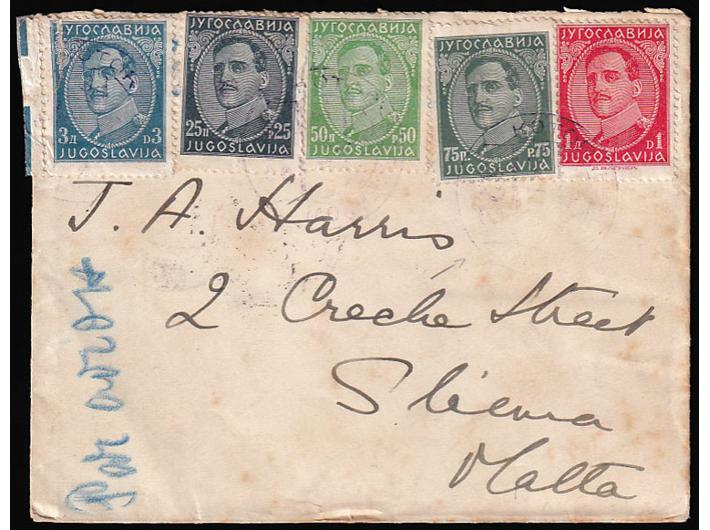 ЈУГОСЛАВИЈА
3Д D3
JUGOSLAVIJA
ЈУГОСЛАВИЈА
25П P25
JUGOSLAVIJA
ЈУГОСЛАВИЈА
50П P50
JUGOSLAVIJA
ЈУГОСЛАВИЈА
75П. P.75
JUGOSLAVIJA
ЈУГОСЛАВИЈА
1Д D1
JUGOSLAVIJA
Д. ВАГНЕР
J. A. Harris
2 Creche Street
Sliema
Malta
Par avion